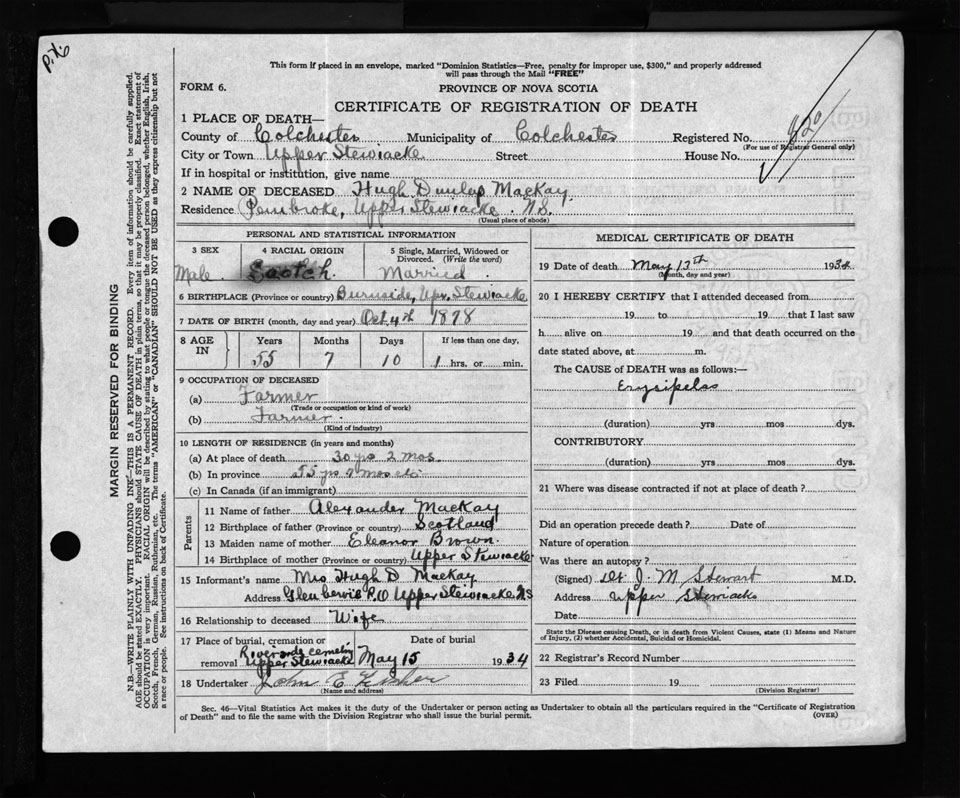 P.X.6
This form if placed in an envelope, marked "Dominion Statistics—Free, penalty for improper use, $300," and properly addressed
will pass through the Mail "FREE"
FORM 6.
PROVINCE OF NOVA SCOTIA
CERTIFICATE OF REGISTRATION OF DEATH
1 PLACE OF DEATH—
County of Colchester Municipality of Colchester Registered No.
(For use of Registrar General only)
City or Town Upper Stewiacke Street House No.
If in hospital or institution, give name
2 NAME OF DECEASED Hugh Dunlap MacKay
Residence Pembroke, Upper Stewiacke. N.S.
(Usual place of abode)
PERSONAL AND STATISTICAL INFORMATION
3 SEX 4 RACIAL ORIGIN 5 Single, Married, Widowed or
Divorced. (Write the word)
Male Scotch. Married
6 BIRTHPLACE (Province or country) Burnside, Upr. Stewiacke
7 DATE OF BIRTH (month, day and year) Oct 4th 1878
8 AGE IN Years Months Days If less than one day,
55 7 10 hrs. or min.
9 OCCUPATION OF DECEASED
(a) Farmer
(Trade or occupation or kind of work)
(b) Farmer.
(Kind of industry)
10 LENGTH OF RESIDENCE (in years and months)
(a) At place of death 30 yrs 2 mos.
(b) In province 55 yrs 7 mos etc
(c) In Canada (if an immigrant)
Parents
11 Name of father Alexander MacKay
12 Birthplace of father (Province or country) Scotland
13 Maiden name of mother Eleanor Brown.
14 Birthplace of mother (Province or country) Upper Stewiacke
15 Informant's name Mrs Hugh D MacKay
Address P.O Upper Stewiacke NS
16 Relationship to deceased Wife
17 Place of burial, cremation or removal Riverside cemetery Upper Stewiacke
Date of burial May 15 1934
18 Undertaker John E
(Name and address)
MEDICAL CERTIFICATE OF DEATH
19 Date of death May 13th 1934
(Month, day and year)
20 I HEREBY CERTIFY that I attended deceased from
19 to 19 that I last saw
h alive on 19 and that death occurred on the
date stated above, at m.
The CAUSE of DEATH was as follows:—
Erysipelas
(duration) yrs mos dys.
CONTRIBUTORY
(duration) yrs mos dys.
21 Where was disease contracted if not at place of death?
Did an operation precede death? Date of
Nature of operation
Was there an autopsy?
(Signed) Dr. J. M Stewart M.D.
Address Upper Stewiacke
Date
State the Disease causing Death, or in death from Violent Causes, state (1) Means and Nature
of Injury, (2) whether Accidental, Suicidal or Homicidal.
22 Registrar's Record Number
23 Filed 19
(Division Registrar)
Sec. 46—Vital Statistics Act makes it the duty of the Undertaker or person acting as Undertaker to obtain all the particulars required in the "Certificate of Registration
of Death" and to file the same with the Division Registrar who shall issue the burial permit.
(OVER)
MARGIN RESERVED FOR BINDING
N.B.—WRITE PLAINLY WITH UNFADING INK—THIS IS A PERMANENT RECORD. Every item of information should be carefully supplied.
AGE should be stated EXACTLY. PHYSICIANS should STATE CAUSE OF DEATH in plain terms, so that it may be properly classified. Exact statement of
OCCUPATION is very important. RACIAL ORIGIN will be described by stating to what people or tongue the deceased person belonged, whether English, Irish,
Scotch, French, German, Russian, Ruthenian, etc. The terms "AMERICAN" or "CANADIAN" SHOULD NOT BE USED as they express citizenship but not
a race or people. See instructions on back of Certificate.